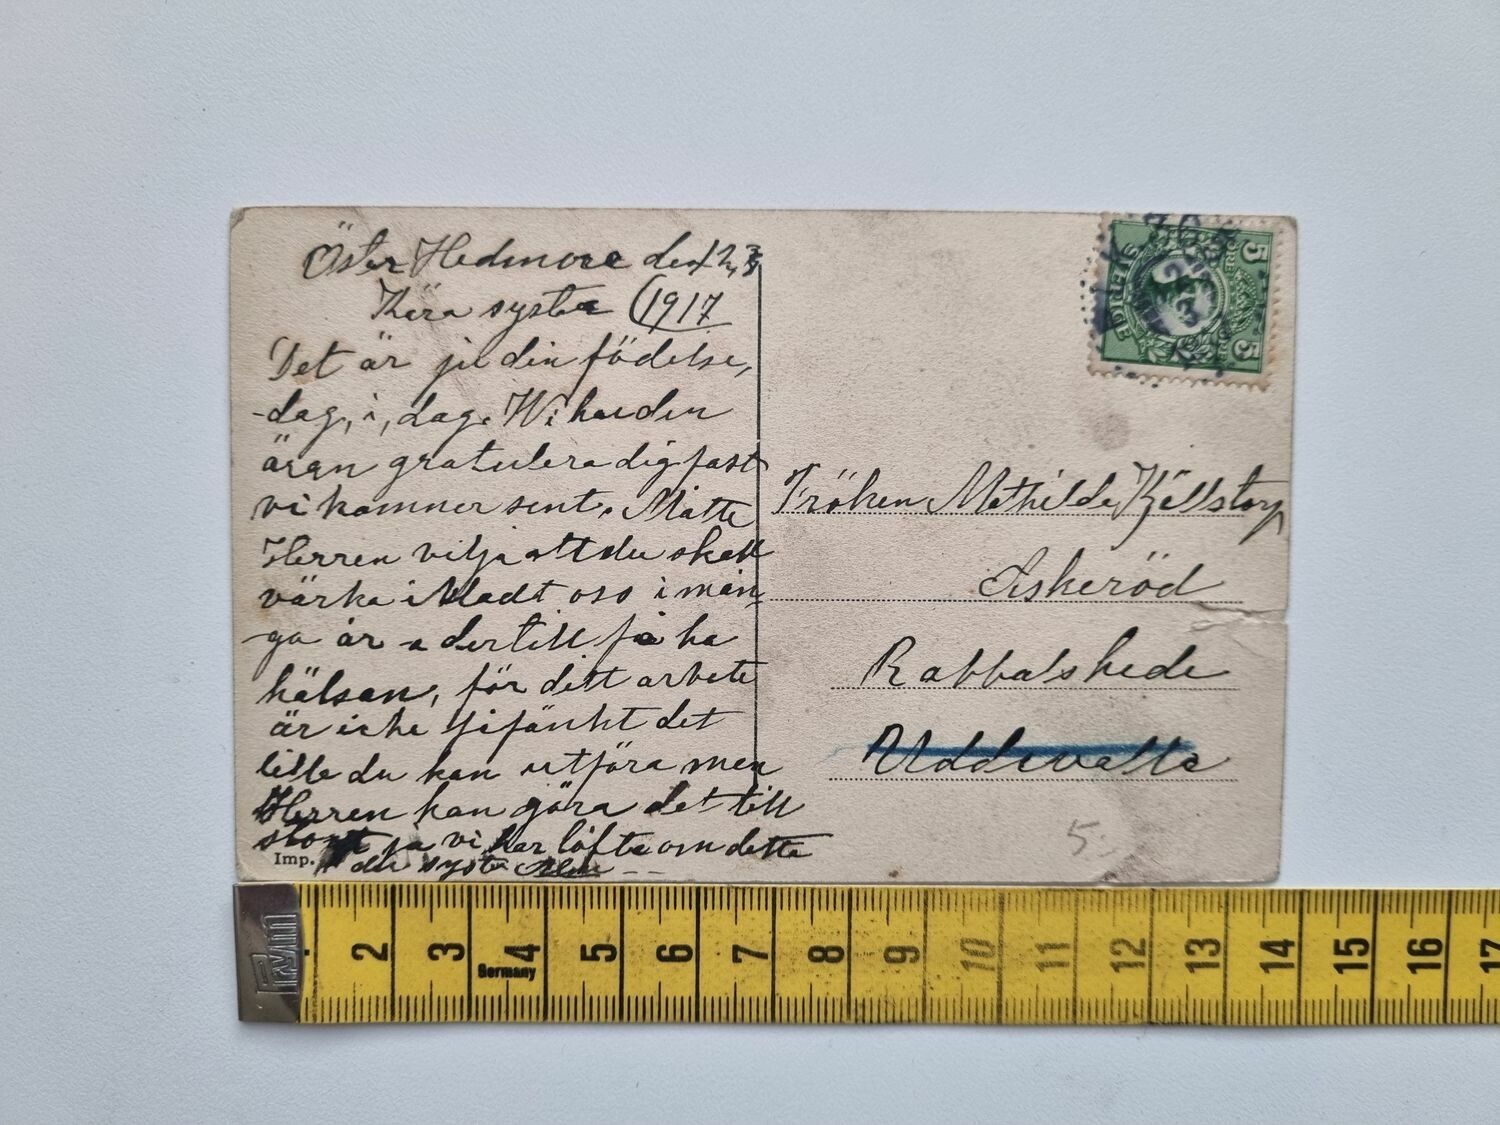 Öster Hedmore den 2
Kära syster (1917
Det är ju din födelse,
-dag, i, dag. Wi ha den
äran gratulera dig fast
vi kommer sent. Måtte
Herren vilja att du skall
värka i bladt oss i mån-
-ga år a dertill få ha
hälsan, för ditt arbete
är icke fifänkt det
lille du kan utföra men
Herren kan göra det till
stort ja vi har löfte om detta
din syster
Imp.
SVERIGE
5 ÖRE 5
Fröken Mathilde Kjellstorp
Askeröd
Rabbalshede
Uddevalla
5:
2 3 4 5 6 7 8 9 10 11 12 13 14 15 16 17
Germany
Prym